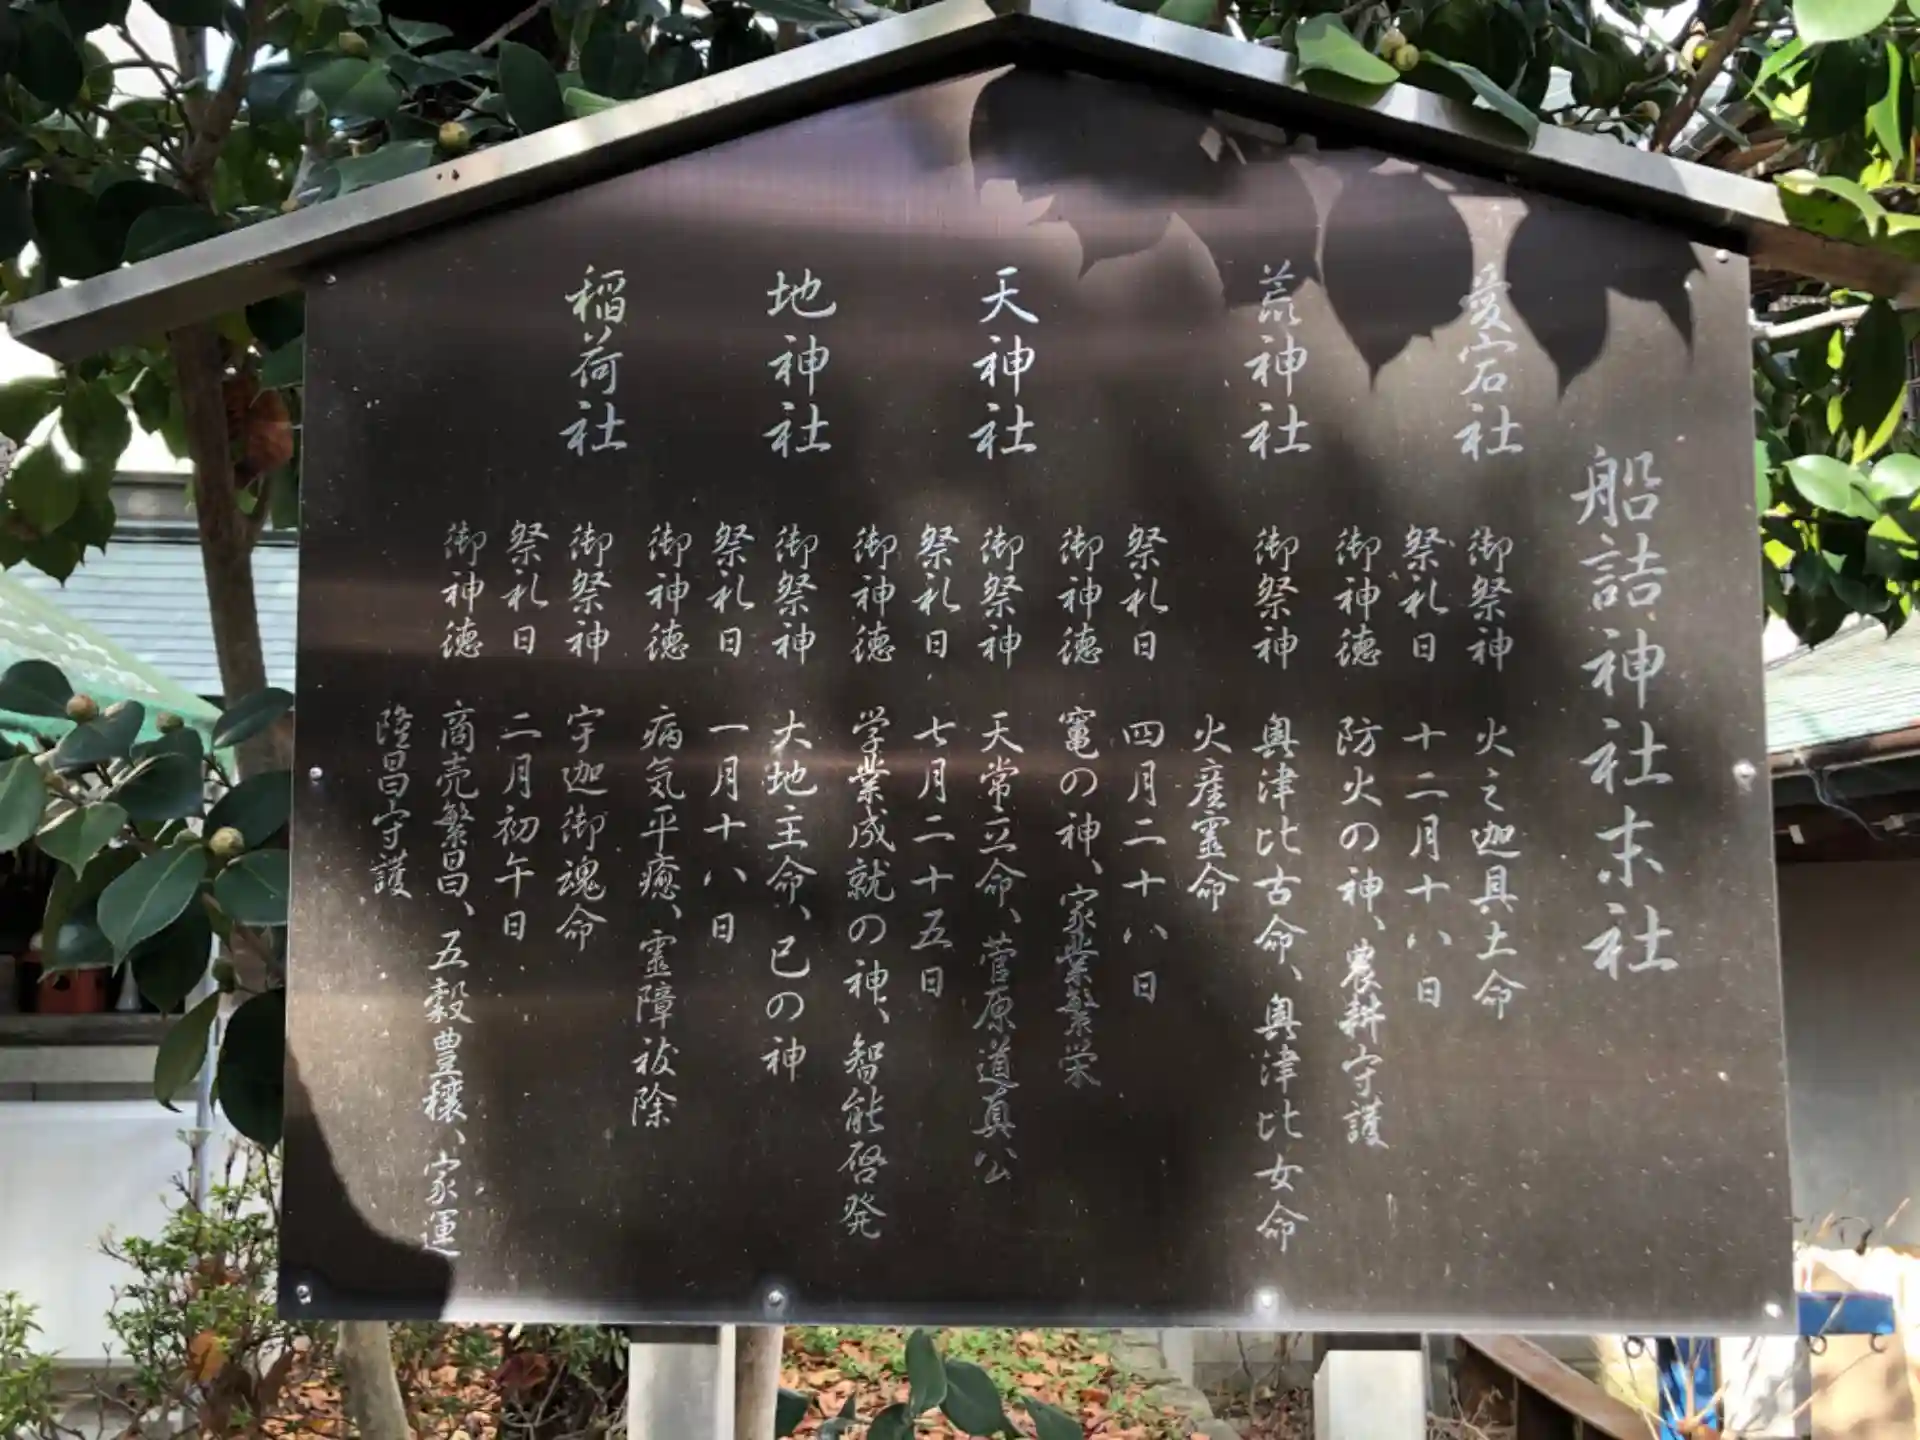 船詰神社末社
愛宕社
御祭神 火之迦具土命
祭礼日 十二月十八日
御神徳 防火の神、農耕守護
荒神社
御祭神 奥津比古命、奥津比女命
火産霊命
祭礼日 四月二十八日
御神徳 竈の神、家業繁栄
天神社
御祭神 天常立命、菅原道真公
祭礼日 七月二十五日
御神徳 学業成就の神、智能啓発
地神社
御祭神 大地主命、巳の神
祭礼日 一月十八日
御神徳 病気平癒、霊障祓除
稲荷社
御祭神 宇迦御魂命
祭礼日 二月初午日
御神徳 商売繁昌、五穀豊穣、家運
隆昌守護